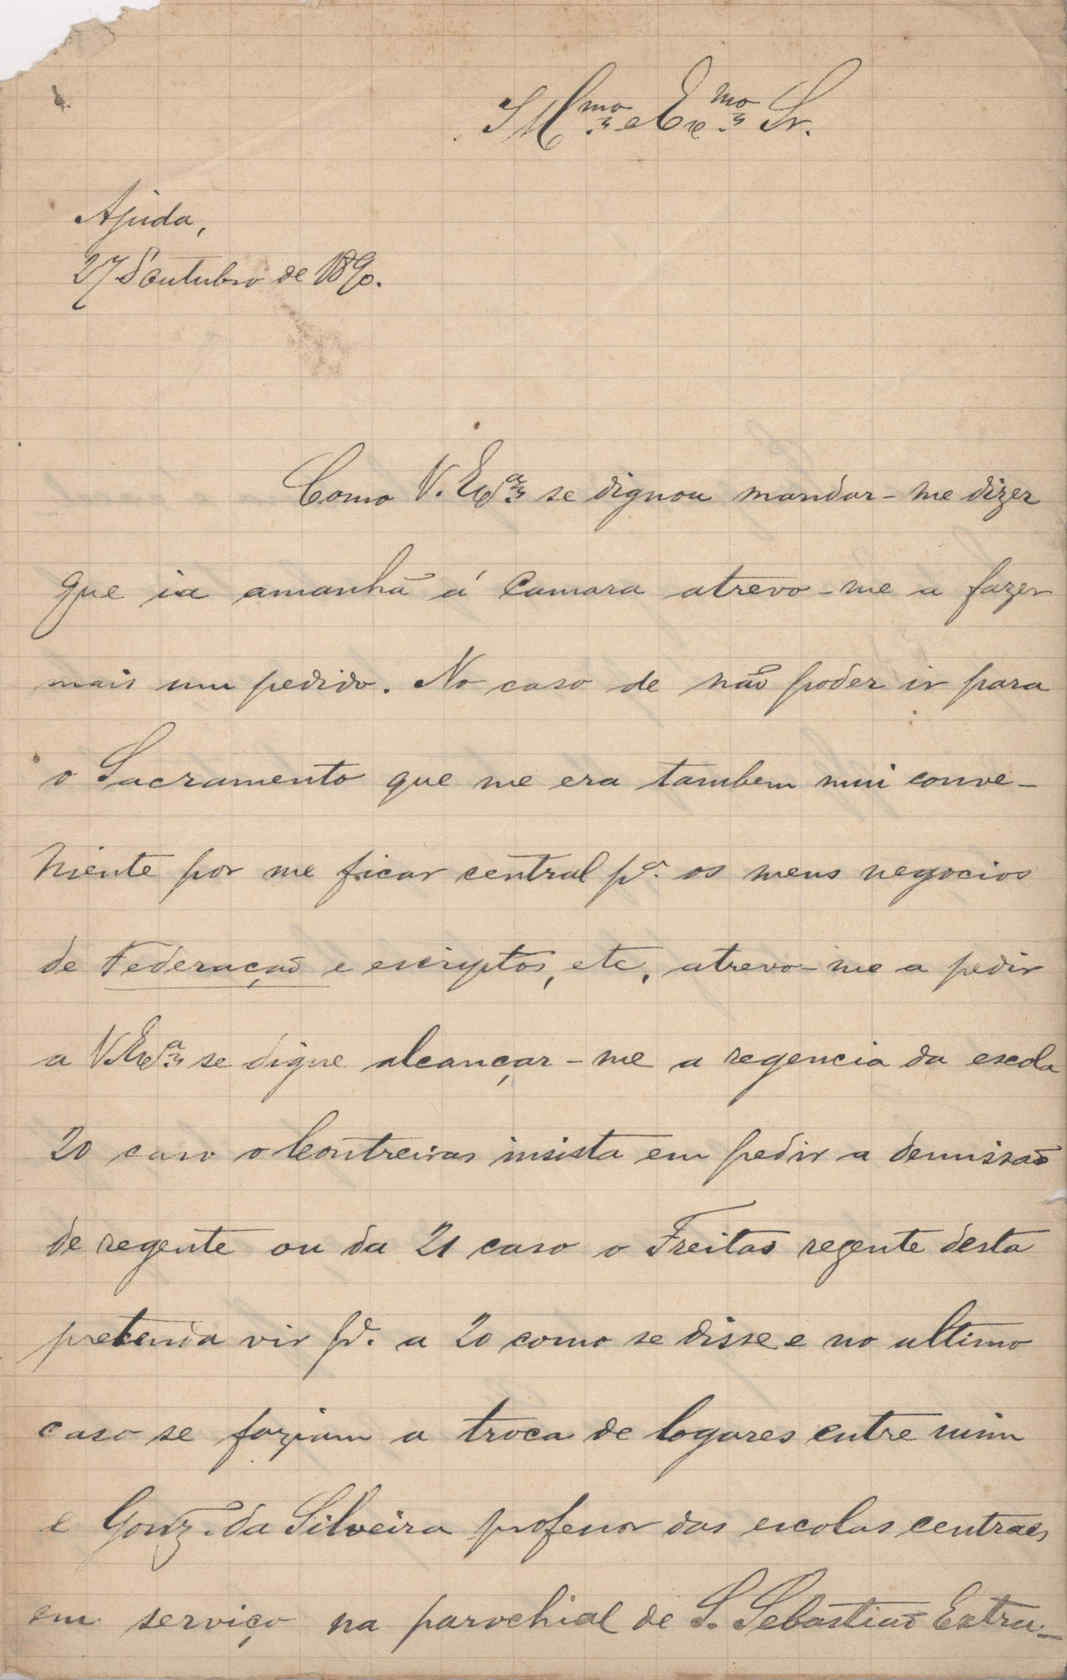 Ill.mo e Ex.mo Sr.
Ajuda,
27 d'outubro de 1890.
Como V. Ex.a se dignou mandar-me dizer
que ia amanhã á Camara atrevo-me a fazer
mais um pedido. No caso de não poder ir para
o Sacramento que me era tambem mui conve-
niente por me ficar central p.a os meus negocios
de Federação e escriptos, etc, atrevo-me a pedir
a V. Ex.a se digne alcançar-me a regencia da escola
20 caso o Contreiras insista em pedir a demissão
de regente ou da 21 caso o Freitas regente desta
pretenda vir p.a a 20 como se disse e no ultimo
caso se faziam a troca de logares entre mim
e Gonz. da Silveira professor das escolas centraes
em serviço na parochial de S. Sebastião Extra-